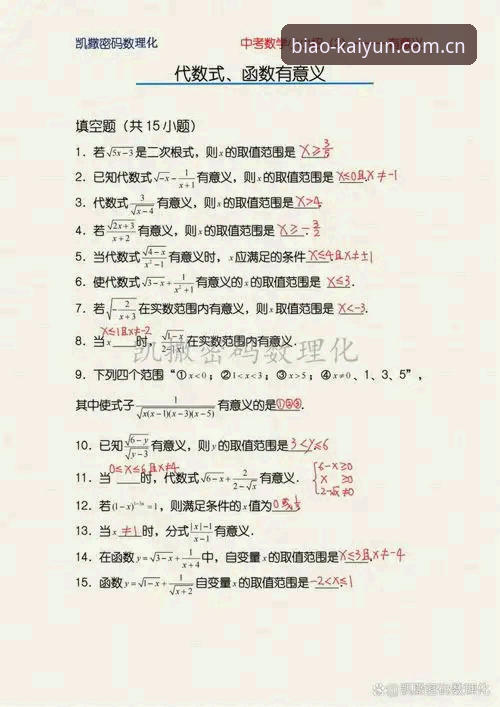 凯撒密码数理化 中考数学
biao-kaiyun.com.cn
代数式、函数有意义
填空题（共15小题）
1. 若√(5x-3)是二次根式，则x的取值范围是 x≥3/5
2. 已知代数式√(-x)-1/(x+1)有意义，则x的取值范围是 x≤0且x≠-1
3. 代数式3/√(x-4)有意义，则x的取值范围是 x>4.
4. 若√(2x+3)/(x+2)有意义，则x的取值范围是 x≥-3/2
5. 当代数式√(4-x)/(x²-1)有意义时，x应满足的条件 x≤4且x≠±1
6. 使代数式√(3-x)+1/(x²+1)有意义的x的取值范围是 x≤3.
7. 若√(-2/(x+3))在实数范围内有意义，则x取值范围是 x<-3.
8. 当x x≤1且x≠-2 时，在实数范围内有意义.
凯撒密码数理化
9. 下列四个范围“①x<0；②1<x<3；③x>5；④x≠0、1、3、5”，
其中使式子1/√(x(x-1)(x-3)(x-5))有意义的是①②③.
10. 已知√(6-y)/√(y-3)有意义，则y的取值范围是 3<y≤6
11. 当 0≤x≤6且x≠4 时，代数式√(6-x)+2/(2-√x)有意义. { 6-x≥0 x≥0 2-√x≠0
12. 若=1，则满足条件的x值为 0或
13. 当x ≠1 时，分式(|x|-1)/(x-1)有意义.
14. 在函数y=√(3-x)+1/(x+4)中，自变量x的取值范围是 x≤3且x≠-4
15. 函数y=√(1-x)+1/√(x+2)自变量x的取值范围是 -2<x≤1
@凯撒密码数理化